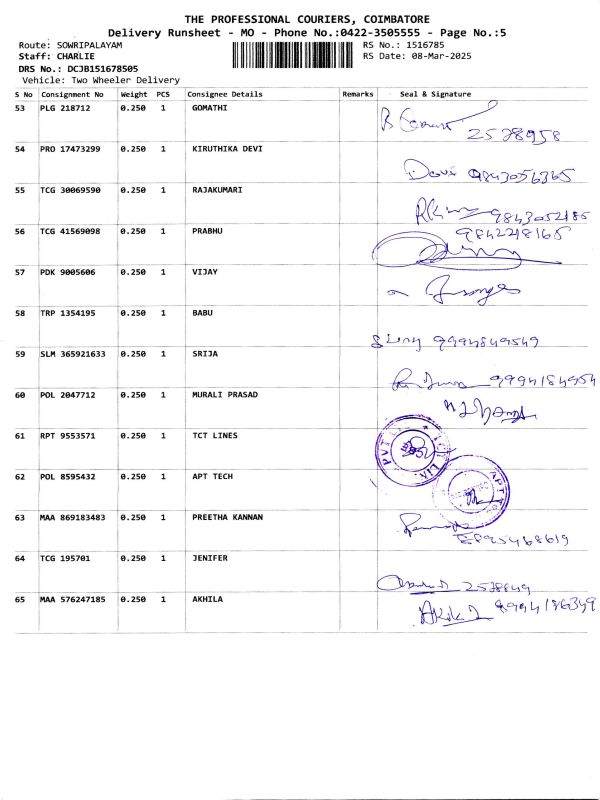 THE PROFESSIONAL COURIERS, COIMBATORE
Delivery Runsheet - MO - Phone No.:0422-3505555 - Page No.:5
Route: SOWRIPALAYAM RS No.: 1516785
Staff: CHARLIE RS Date: 08-Mar-2025
DRS No.: DCJB151678505
Vehicle: Two Wheeler Delivery
S No Consignment No Weight PCS Consignee Details Remarks Seal & Signature
53 PLG 218712 0.250 1 GOMATHI
2578958
54 PRO 17473299 0.250 1 KIRUTHIKA DEVI
Devi 9843056365
55 TCG 30069590 0.250 1 RAJAKUMARI
9843052185
56 TCG 41569098 0.250 1 PRABHU 9842218165
57 PDK 9005606 0.250 1 VIJAY
58 TRP 1354195 0.250 1 BABU
9994849549
59 SLM 365921633 0.250 1 SRIJA
9994184954
60 POL 2047712 0.250 1 MURALI PRASAD
61 RPT 9553571 0.250 1 TCT LINES
62 POL 8595432 0.250 1 APT TECH
63 MAA 869183483 0.250 1 PREETHA KANNAN
8895468619
64 TCG 195701 0.250 1 JENIFER
2578849
65 MAA 576247185 0.250 1 AKHILA 9994186349